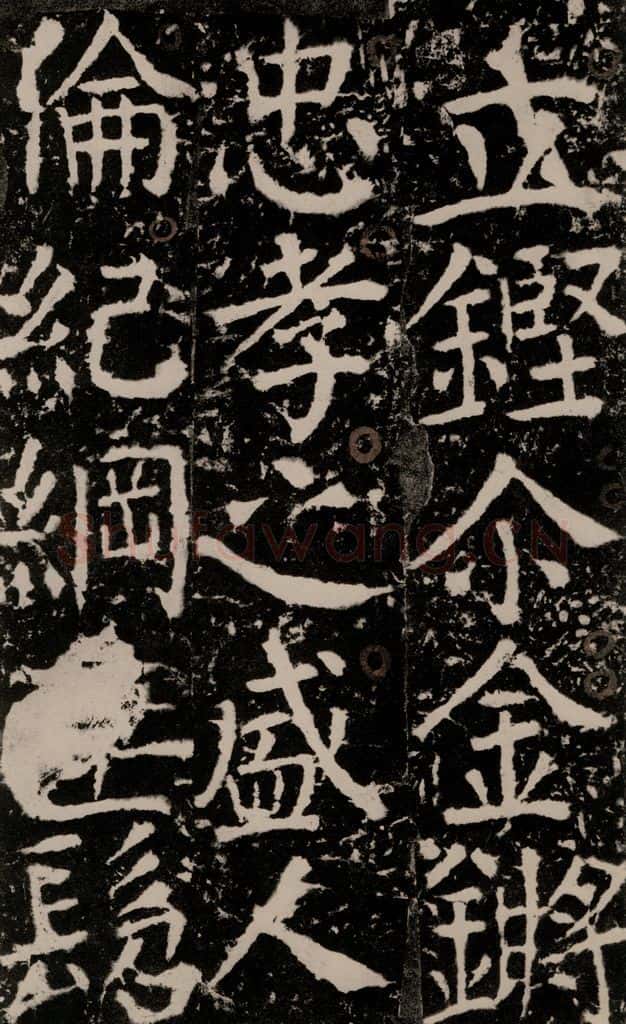 立鏗尒金鏘
忠孝之盛人
倫紀綱
Shufawang.CN